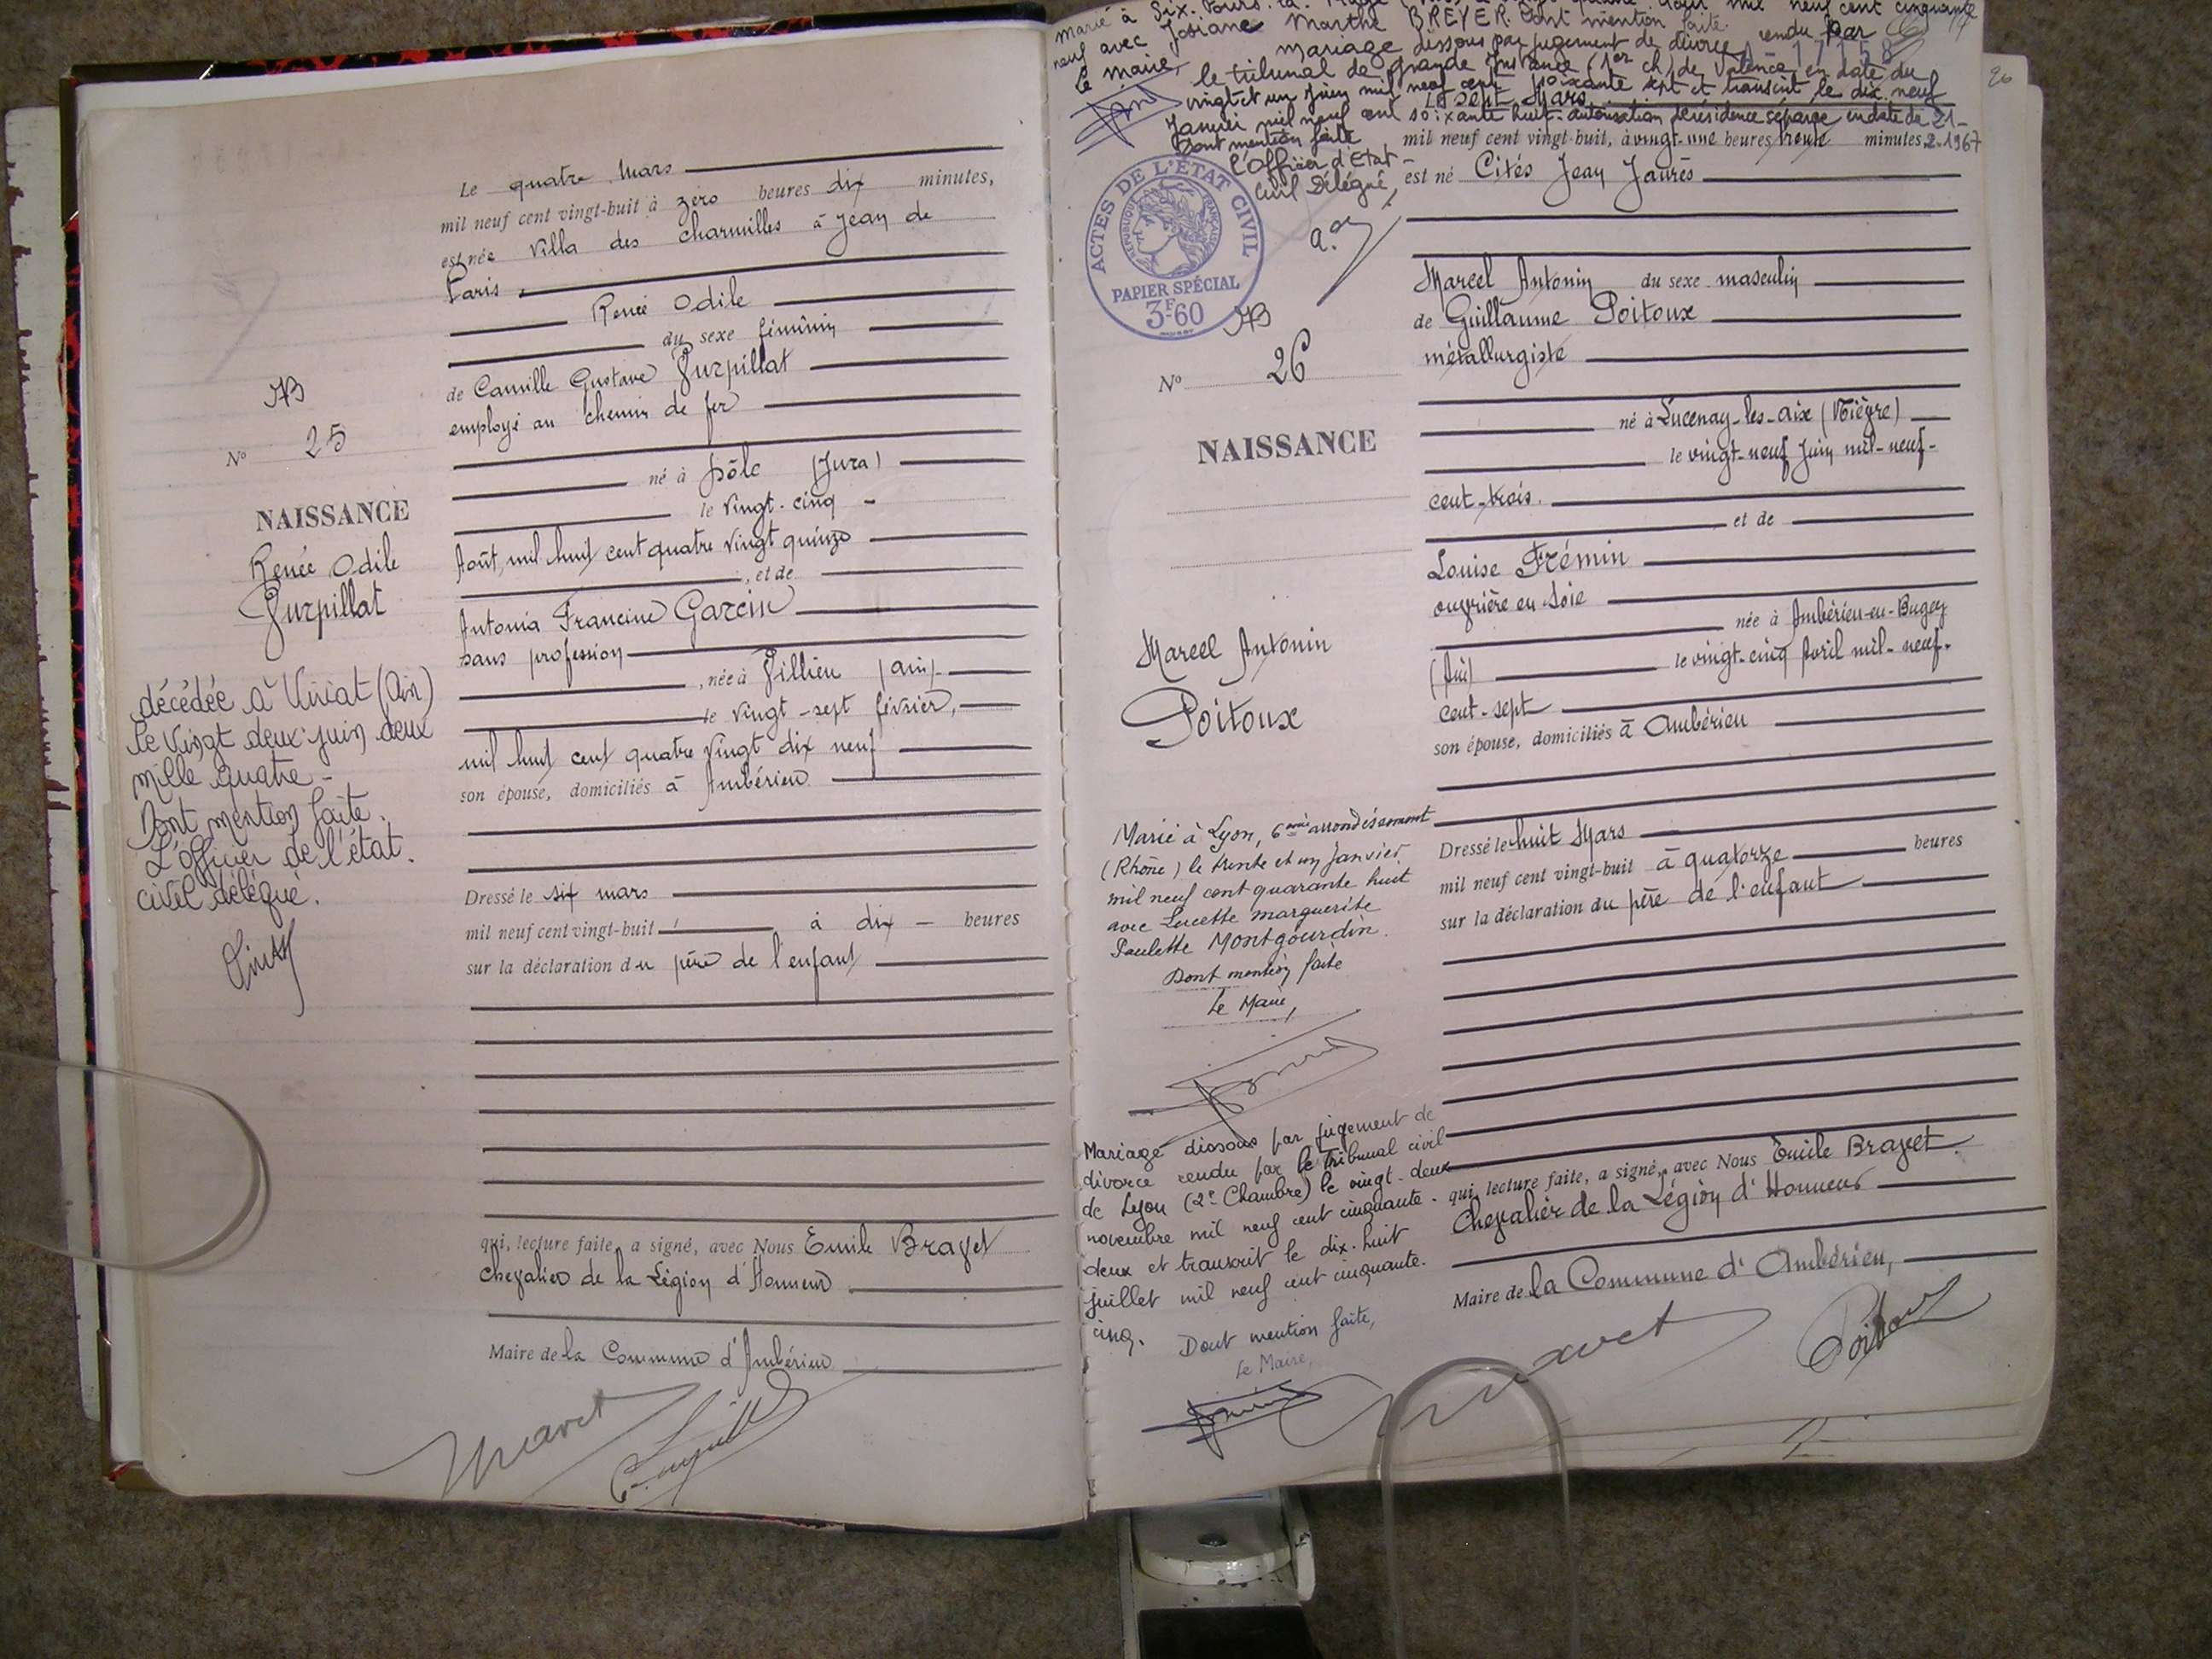 Le quatre Mars
mil neuf cent vingt-huit à zéro heures dix minutes,
est née Villa des Charmilles à Jean de
Paris,
Renée Odile
du sexe féminin
de Camille Gustave Jurpillat
employé au chemin de fer
né à Dôle (Jura)
le vingt-cinq
Août, mil huit cent quatre vingt quinze
, et de
Antonia Francine Garcin
sans profession
, née à Villieu (ain)
le vingt-sept février,
mil huit cent quatre vingt dix neuf
son épouse, domiciliés à Ambérieu
Dressé le six mars
mil neuf cent vingt-huit, à dix heures
sur la déclaration du père de l'enfant
qui, lecture faite, a signé, avec Nous Emile Bravet
Chevalier de la Légion d'Honneur
Maire de la Commune d'Ambérieu
AB
No 25
NAISSANCE
Renée Odile
Jurpillat
décédée à Viriat (Ain)
le vingt deux juin deux
mille quatre -
Dont mention faite.
L'officier de l'état
civil délégué.
marié à Six-Fours-la-Plage mil neuf cent cinquante
neuf avec Josiane Marthe BREYER. Dont mention faite.
Le Maire,
mariage dissous par jugement de divorce rendu par
le tribunal de grande Instance (1er ch) de Valence en date du
vingt et un Juin mil neuf cent soixante sept et transcrit le dix neuf
Janvier mil neuf cent soixante huit - autorisation de résidence séparée en date du 21-
2.1967
Dont mention faite
L'officier d'Etat-
Civil Délégué,
26
Le sept Mars
mil neuf cent vingt-huit, à vingt-une heures trente minutes
est né Cités Jean Jaurès
Marcel Antonin du sexe masculin
de Guillaume Poitoux
métallurgiste
né à Lucenay-les-aix (Nièvre)
le vingt-neuf Juin mil-neuf-
cent-trois.
et de
Louise Frémin
ouvrière en Soie
née à Ambérieu-en-Bugey
(Ain) le vingt-cinq Avril mil-neuf-
cent-sept
son épouse, domiciliés à Ambérieu
Dressé le huit Mars
mil neuf cent vingt-huit à quatorze heures
sur la déclaration du père de l'enfant
qui, lecture faite, a signé, avec Nous Emile Bravet
Chevalier de la Légion d'Honneur
Maire de la Commune d'Ambérieu,
Bravet
Poitoux
ACTES DE L'ÉTAT CIVIL
RÉPUBLIQUE FRANÇAISE
PAPIER SPÉCIAL
3F60
AB
No 26
NAISSANCE
Marcel Antonin
Poitoux
Marié à Lyon, 6ème arrondissement
(Rhône) le trente et un Janvier
mil neuf cent quarante huit
avec Lucette Marguerite
Paulette Montgourdin.
Dont mention faite
Le Maire,
Mariage dissous par jugement de
divorce rendu par le Tribunal civil
de Lyon (2e Chambre) le vingt-deux
novembre mil neuf cent cinquante-
deux et transcrit le dix-huit
juillet mil neuf cent cinquante-
cinq. Dont mention faite,
Le Maire,